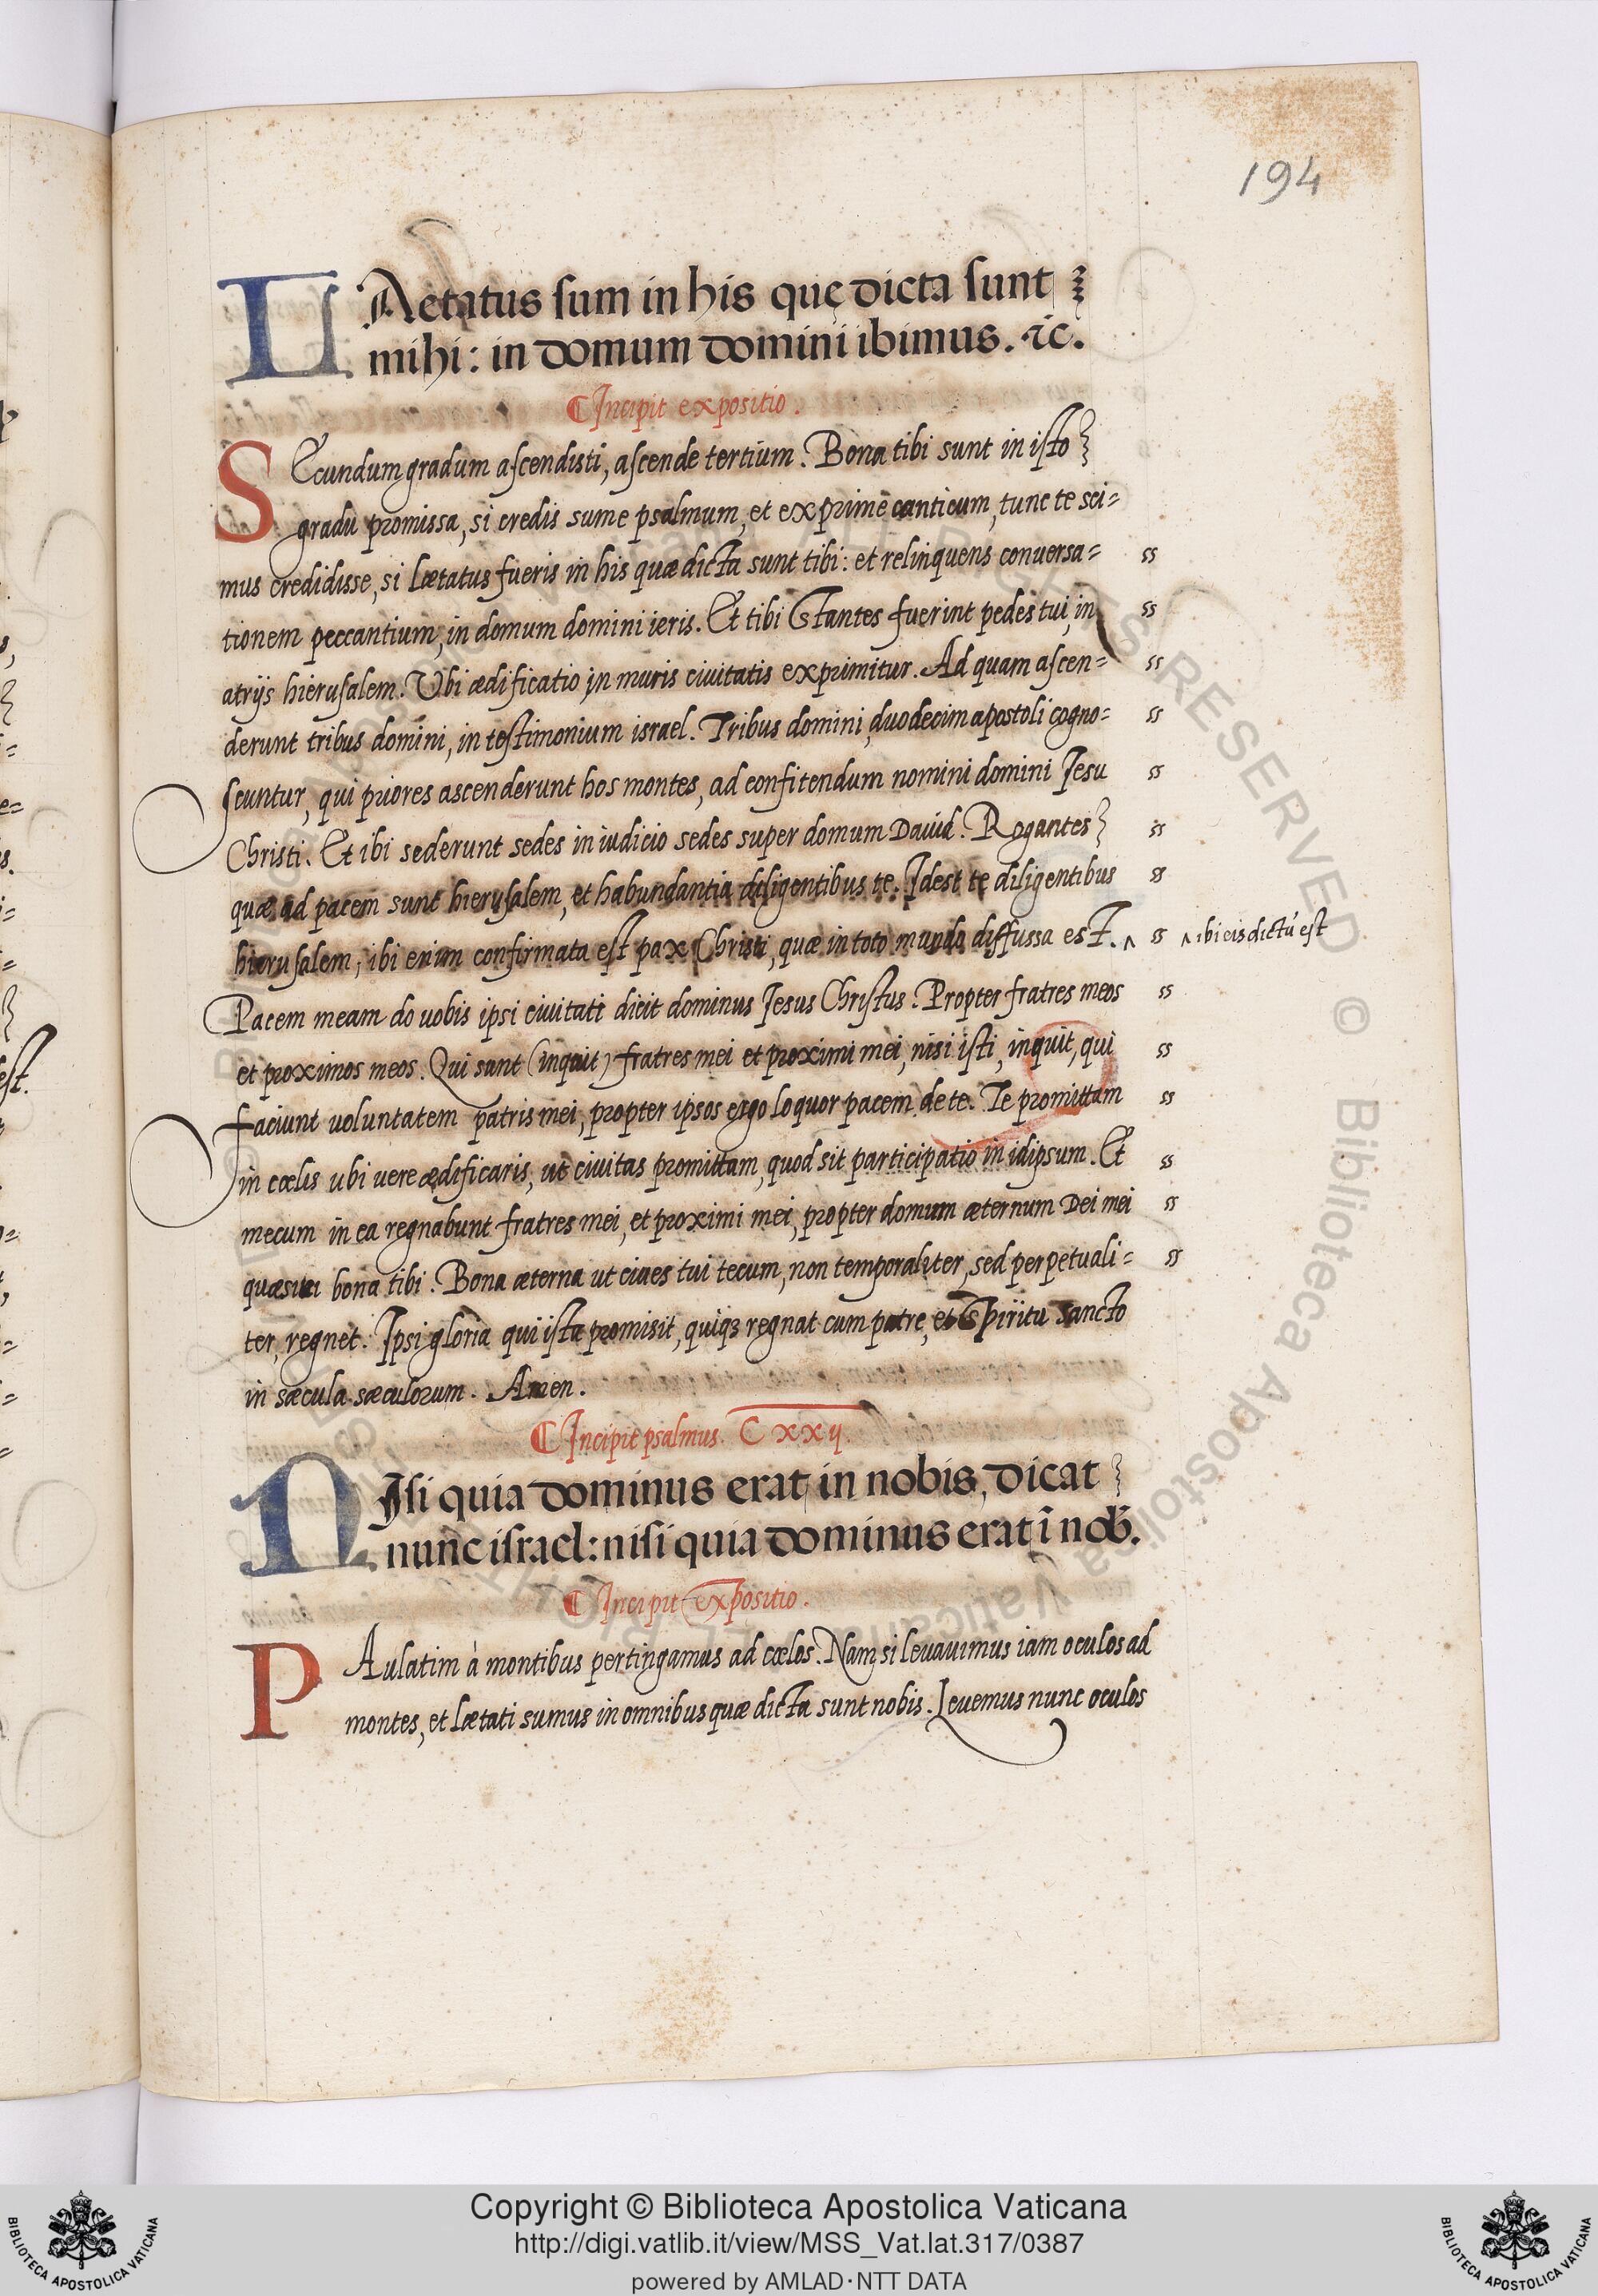 194
LAetatus sum in his quę dicta sunt
mihi: in domum domini ibimus. ⁊c.
¶Incipit expositio.
SEcundum gradum ascendisti, ascende tertium. Bona tibi sunt in isto
gradu promissa, si credis sume psalmum, et exprime canticum, tunc te sci=
mus credidisse, si lætatus fueris in his quæ dicta sunt tibi: et relinquens conuersa= ss
tionem peccantium, in domum domini ieris. Et tibi stantes fuerint pedes tui, in ss
atrijs hierusalem. Vbi ædificatio in muris ciuitatis exprimitur. Ad quam ascen= ss
derunt tribus domini, in testimonium israel. Tribus domini, duodecim apostoli cogno= ss
scuntur, qui priores ascenderunt hos montes, ad confitendum nomini domini Jesu ss
Christi. Et ibi sederunt sedes in iudicio sedes super domum Dauid. Rogantes ss
quæ ad pacem sunt hierusalem, et habundantia diligentibus te. Idest te diligentibus ss
hierusalem, ibi enim confirmata est pax Christi, quæ in toto mundo diffussa est. ^ ss ^ ibi eis dictū est
Pacem meam do uobis ipsi ciuitati dicit dominus Jesus Christus. Propter fratres meos ss
et proximos meos. Qui sunt (inquit) fratres mei et proximi mei, nisi isti, inquit, qui ss
faciunt uoluntatem patris mei, propter ipsos ergo loquor pacem de te. Te promittam ss
in cœlis ubi uere ædificaris, ut ciuitas promittam, quod sit participatio in idipsum. Et ss
mecum in ea regnabunt fratres mei, et proximi mei, propter domum æternum Dei mei ss
quæsiui bona tibi. Bona æterna ut ciues tui tecum, non temporaliter, sed perpetuali= ss
ter, regnet. Ipsi gloria qui ista promisit, quiqȝ regnat cum patre, et Spiritu Sancto
in sæcula sæculorum. Amen.
¶Incipit psalmus. Cxxij.
NIsi quia dominus erat in nobis, dicat
nunc israel: nisi quia dominus erat ī nob̄.
¶Incipit expositio.
PAulatim à montibus pertingamus ad cœlos. Nam si leuauimus iam oculos ad
montes, et lætati sumus in omnibus quæ dicta sunt nobis. Leuemus nunc oculos
Copyright © Biblioteca Apostolica Vaticana
http://digi.vatlib.it/view/MSS_Vat.lat.317/0387
powered by AMLAD·NTT DATA
BIBLIOTECA APOSTOLICA VATICANA
BIBLIOTECA APOSTOLICA VATICANA